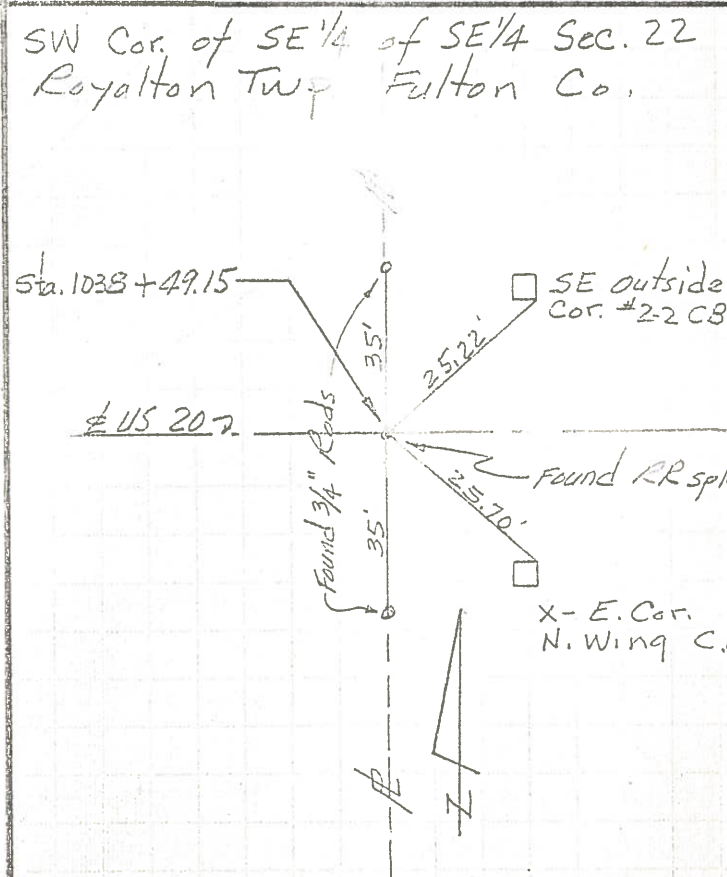 SW Cor. of SE 1/4 of SE 1/4 Sec. 22
Royalton Twp Fulton Co.
Sta. 1038+49.15
SE outside
Cor. #2-2 CB
35'
25.22'
℄ US 20
Found 3/4" Rods
Found RR
35'
25.70'
X- E. Cor.
N. Wing C.